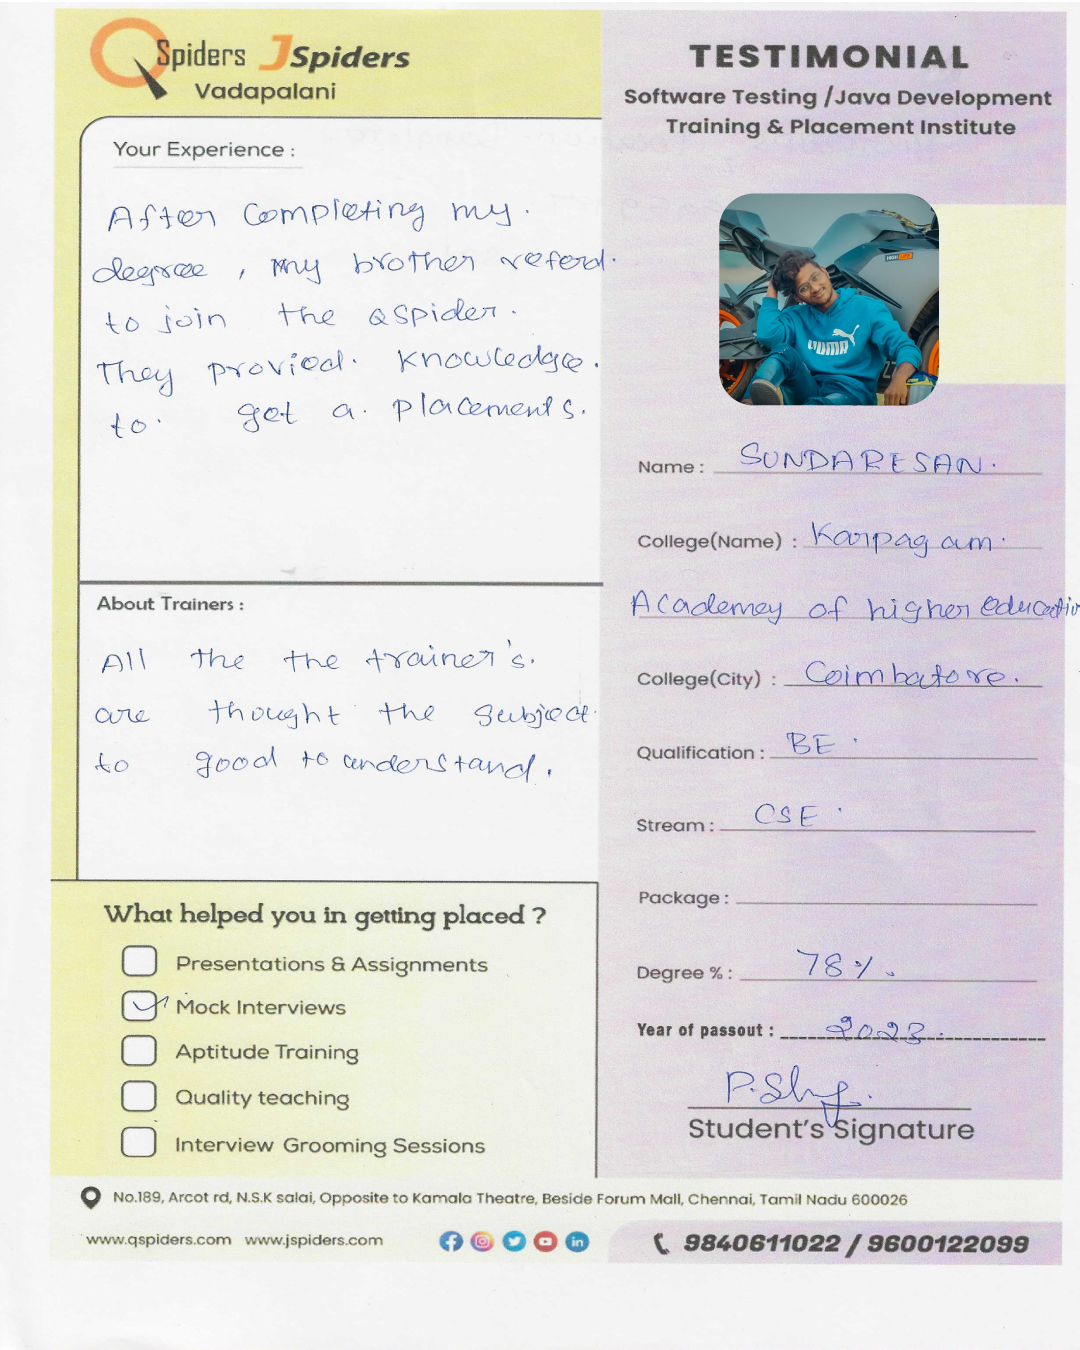 QSpiders JSpiders
Vadapalani
Your Experience :
After Completing my.
degree, my brother referd.
to join the QSpider.
They provied. Knowledge.
to. get a. placements.
About Trainers :
All the the trainer's.
are thought the Subject.
to good to understand.
What helped you in getting placed ?
Presentations & Assignments
Mock Interviews
Aptitude Training
Quality teaching
Interview Grooming Sessions
TESTIMONIAL
Software Testing /Java Development
Training & Placement Institute
HIGH
PUMA
Name : SUNDARESAN.
College(Name) : Karpagam.
Academey of higher educatio
College(City) : Coimbatore.
Qualification : BE.
Stream : CSE.
Package :
Degree % : 78%.
Year of passout : 2023.
Student's Signature
No.189, Arcot rd, N.S.K salai, Opposite to Kamala Theatre, Beside Forum Mall, Chennai, Tamil Nadu 600026
www.qspiders.com www.jspiders.com
9840611022 / 9600122099